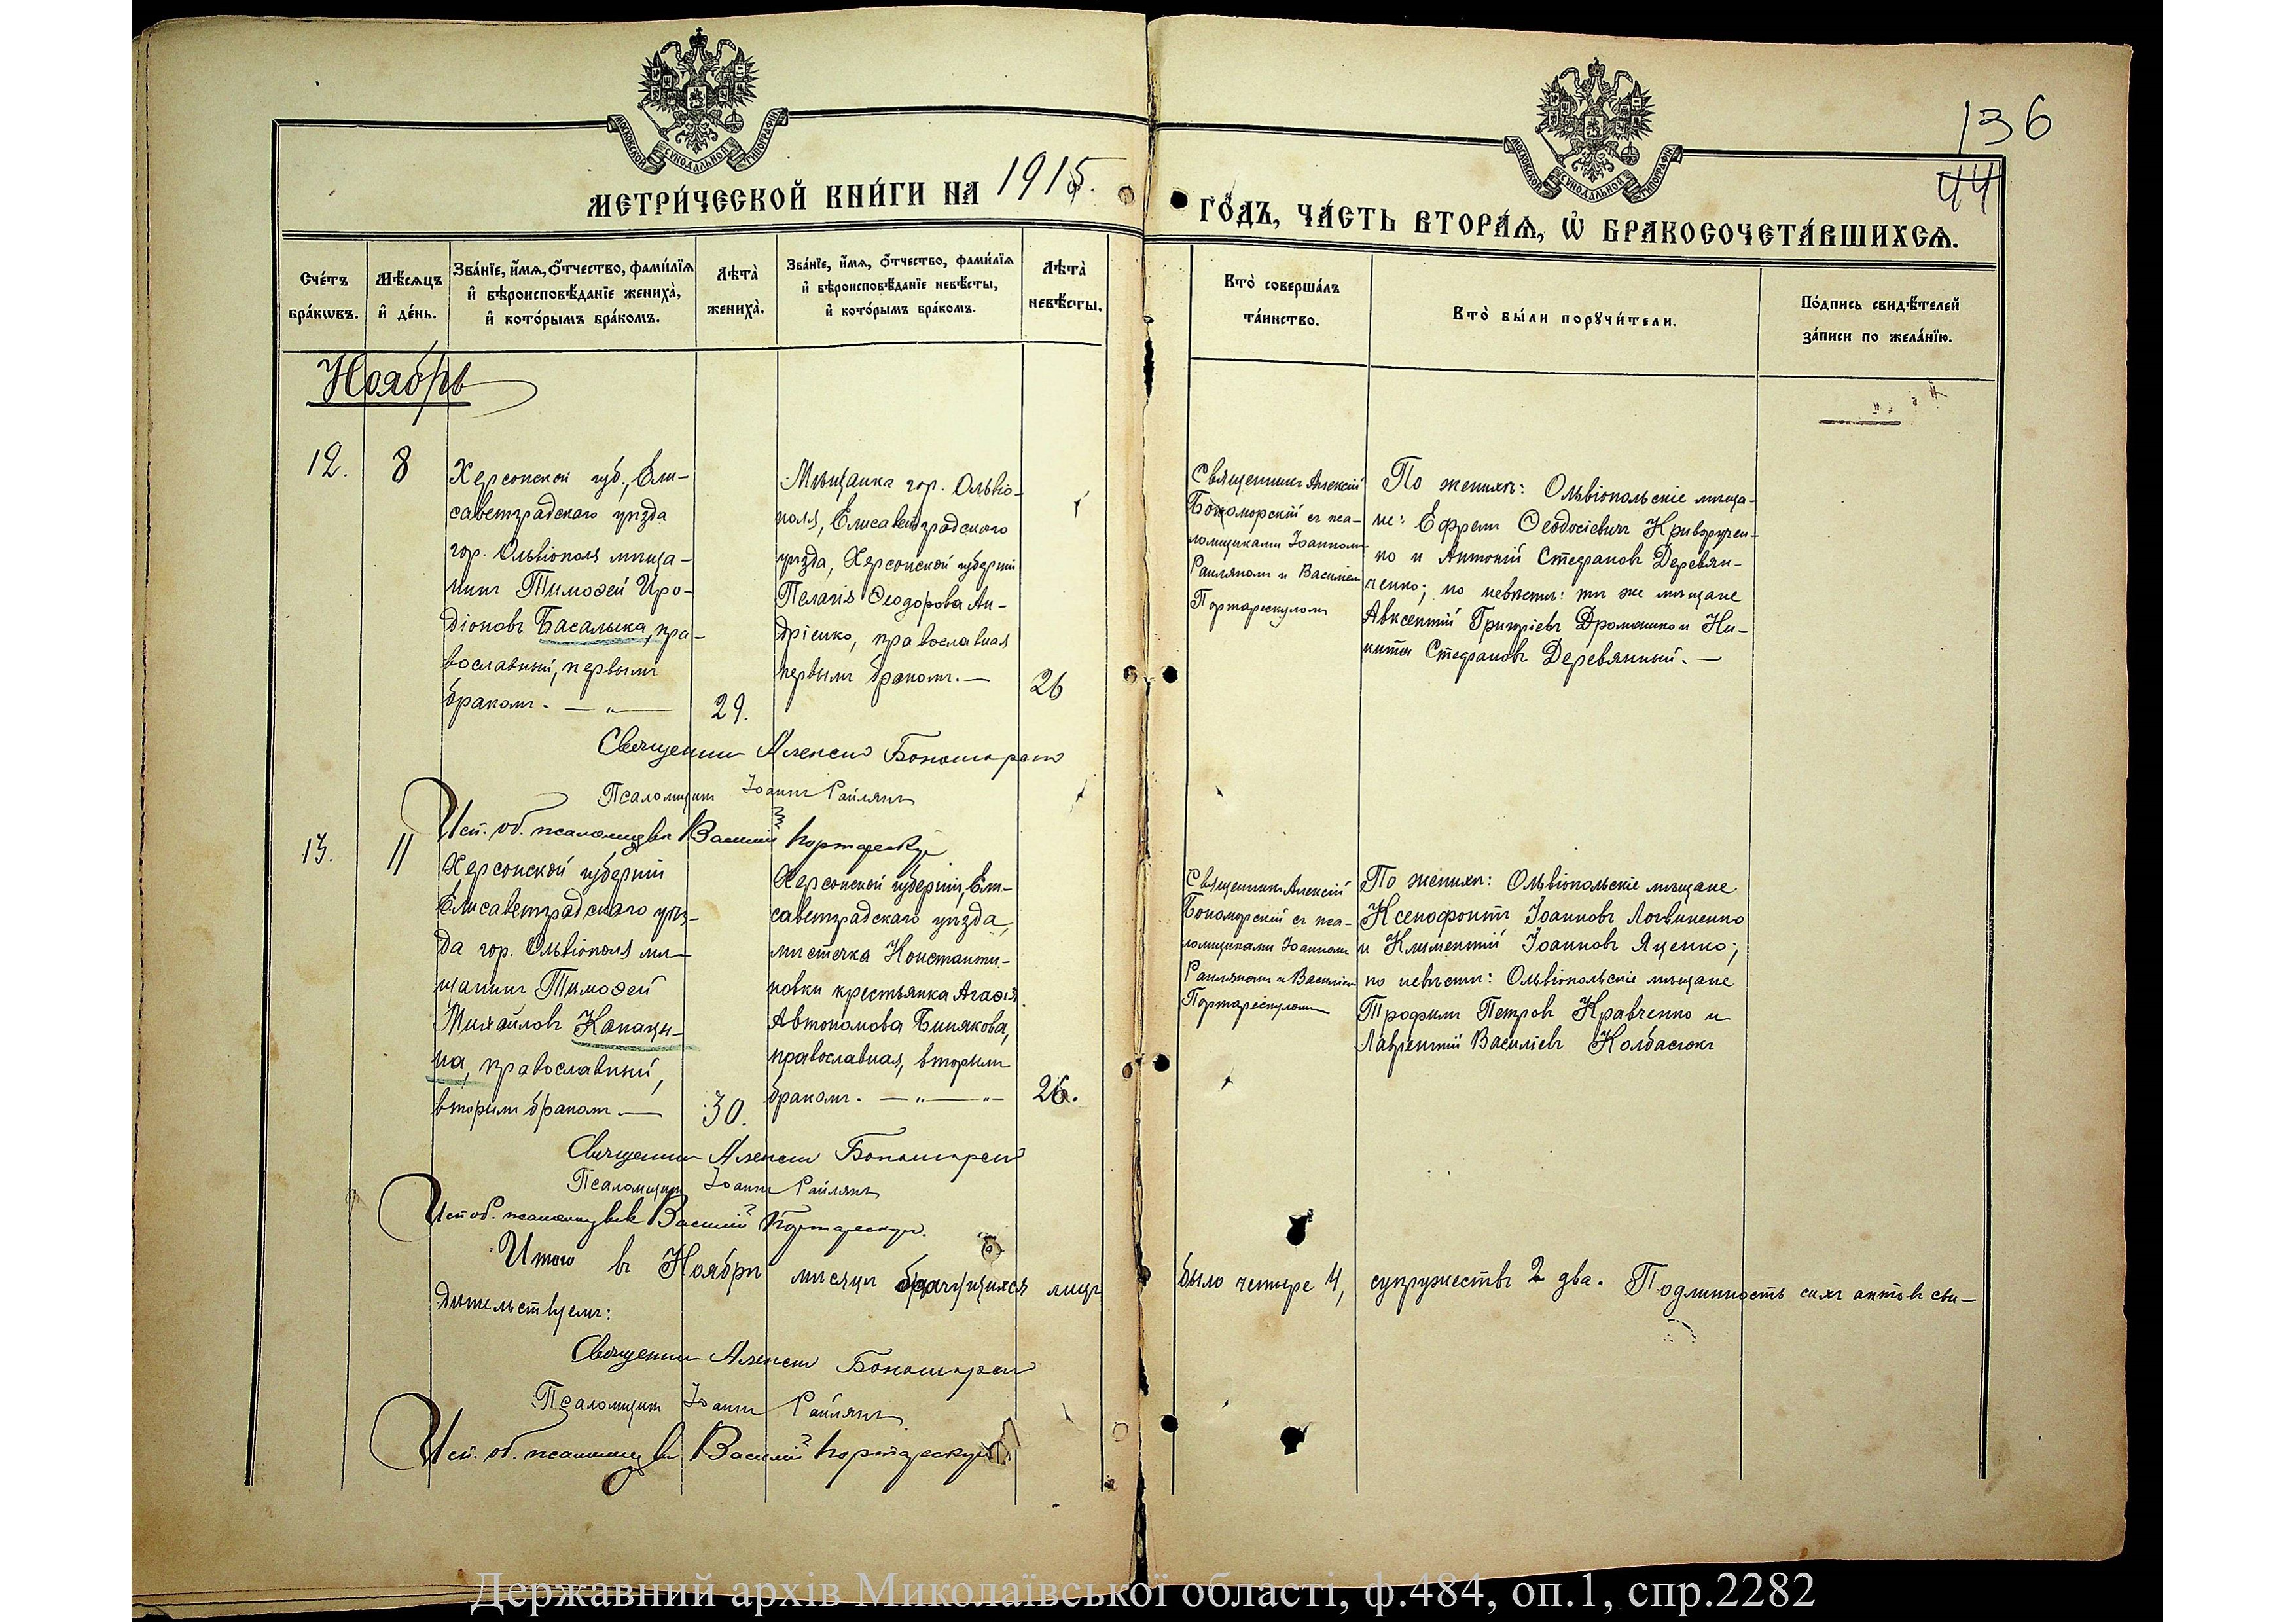 136
44
МОСКОВСКОЙ СѴНОДАЛЬНОЙ ТИПОГРАФІИ
МОСКОВСКОЙ СѴНОДАЛЬНОЙ ТИПОГРАФІИ
МЕТРИ́ЧЕСКОЙ КНИ́ГИ НА 1915.
ГО́ДЪ, ЧА́СТЬ ВТОРА́Ѧ, Ѡ҆ БРАКОСОЧЕТА́ВШИХСѦ.
Сче́тъ
бра́кωвъ.
Мѣ́сѧцъ
и҆ де́нь.
Зва́нїе, и҆́мѧ, ѻ҆́тчество, фами́лїѧ
и҆ вѣроисповѣ́данїе жениха̀,
и҆ кото́рымъ бра́комъ.
Лѣта̀
жениха̀.
Зва́нїе, и҆́мѧ, ѻ҆́тчество, фами́лїѧ
и҆ вѣроисповѣ́данїе невѣ́сты,
и҆ кото́рымъ бра́комъ.
Лѣта̀
невѣ́сты.
Кто̀ соверша́лъ
та́инство.
Кто̀ бы́ли порꙋчи́тели.
По́дпись свидѣ́телей
за́писи по жела́нїю.
Ноябрь
12.
8
Херсонской губ., Ели-
саветградскаго уѣзда
гор. Ольвіополя мѣща-
нинъ Тимоѳей Иро-
діоновъ Басалыка, пра-
вославный, первымъ
бракомъ. — „ —
29.
Мѣщанка гор. Ольвіо-
поля, Елисаветградскаго
уѣзда, Херсонской губерніи
Пелагія Ѳеодорова Ан-
дріенко, православная
первымъ бракомъ. —
26
Священникъ Алексій
Бокоморскій съ пса-
ломщиками Іоанномъ
Раиляномъ и Василіем
Портарескуломъ
По женихѣ: Ольвіопольскіе мѣща-
не: Ефремъ Ѳеодосіевичъ Криворучен-
ко и Антоній Стефановъ Деревян-
ченко; по невѣстѣ: тѣ же мѣщане
Авксентій Григоріевъ Дромошко и Ни-
кита Стефановъ Деревянный. —
Священникъ Алексій
Псаломщикъ Іоаннъ Райлянъ
Исп. об. псаломщика Василій Портарескул
13.
11
Херсонской губерніи
Елисаветградскаго уѣз-
да гор. Ольвіополя мѣ-
щанинъ Тимоѳей
Михайловъ Капацы-
на, православный,
вторымъ бракомъ. —
30.
Херсонской губерніи, Ели-
саветградскаго уѣзда,
мѣстечка Константи-
новки крестьянка Агаѳія
Автономова Бинякова,
православная, вторымъ
бракомъ. — „ — „
26.
Священникъ Алексій
Бокоморскій съ пса-
ломщиками Іоанномъ
Раиляномъ и Василіем
Портарескуломъ
По женихѣ: Ольвіопольскіе мѣщане
Ксенофонтъ Іоанновъ Логвиненко
и Климентій Іоанновъ Яценко;
по невѣстѣ: Ольвіопольскіе мѣщане
Трофимъ Петровъ Кравченко и
Лаврентій Василіевъ Колбасюкъ
Священникъ Алексій
Псаломщикъ Іоаннъ Райлянъ
Исп об. псаломщика Василій Портарескул.
Итого въ Ноябрѣ мѣсяцѣ брачущихся лицъ было четыре 4, супружествъ 2 два. Подлинность сихъ актовъ сви-
дѣтельствуемъ:
Священникъ Алексій
Псаломщикъ Іоаннъ Райлянъ
Исп. об. псаломщика Василій Портарескул
Державний архів Миколаївської області, ф.484, оп.1, спр.2282